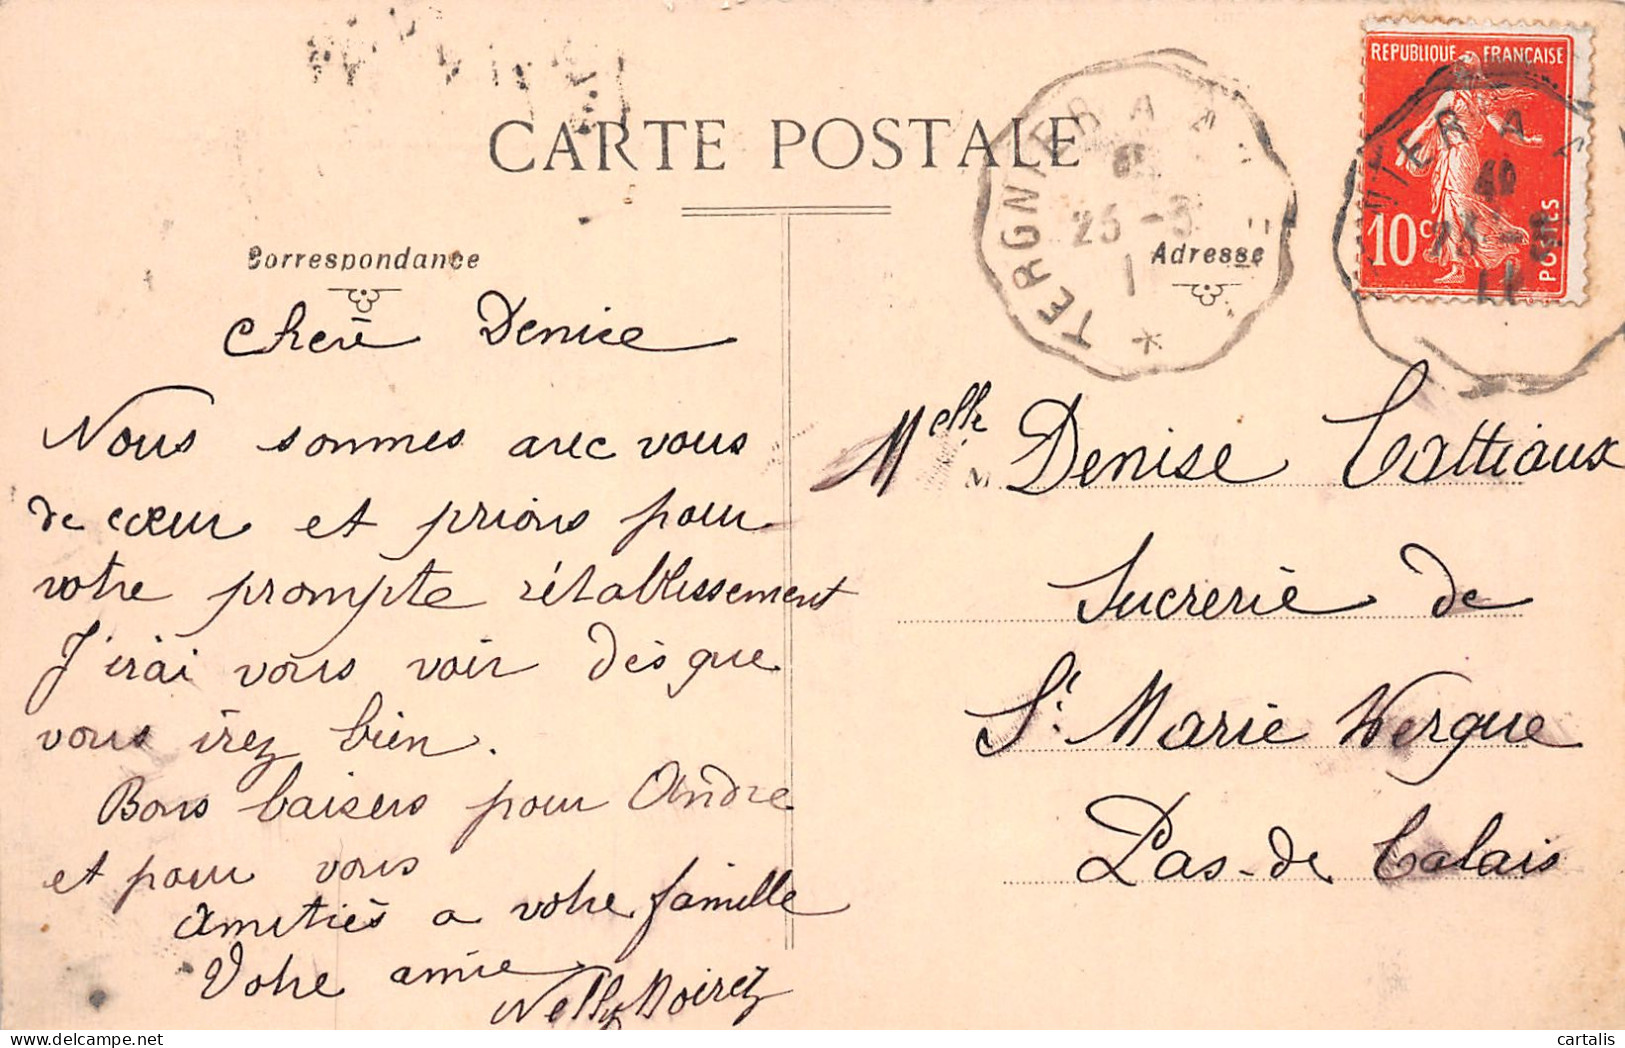 CARTE POSTALE
Correspondance
Adresse
REPUBLIQUE FRANÇAISE
10c
POSTES
TERGNIER A A
25 - 3
1
TERGNIER A A
25 - 3
11
Chere Denise
Nous sommes avec vous
de cœur et prions pour
votre prompte rétablissement
J'irai vous voir dès que
vous irez bien.
Bons baisers pour André
et pour vous
Amitiés a votre famille
Votre amie
Nelly Moirez
Melle Denise Cattiaux
M
Sucrerie de
St. Marie Kergue
Pas-de Calais
cartalis